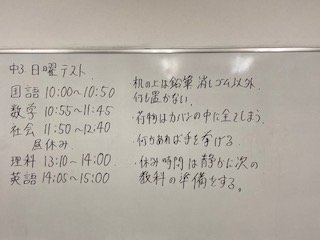 中3 日曜テスト.
国語 10:00〜10:50
数学 10:55〜11:45
社会 11:50〜12:40
昼休み.
理科 13:10〜14:00
英語 14:05〜15:00
机の上は鉛筆 消しゴム以外
何も置かない.
・荷物はカバンの中に全てしまう.
・何かあれば手を挙げる.
・休み時間は静かに次の
教科の準備をする。